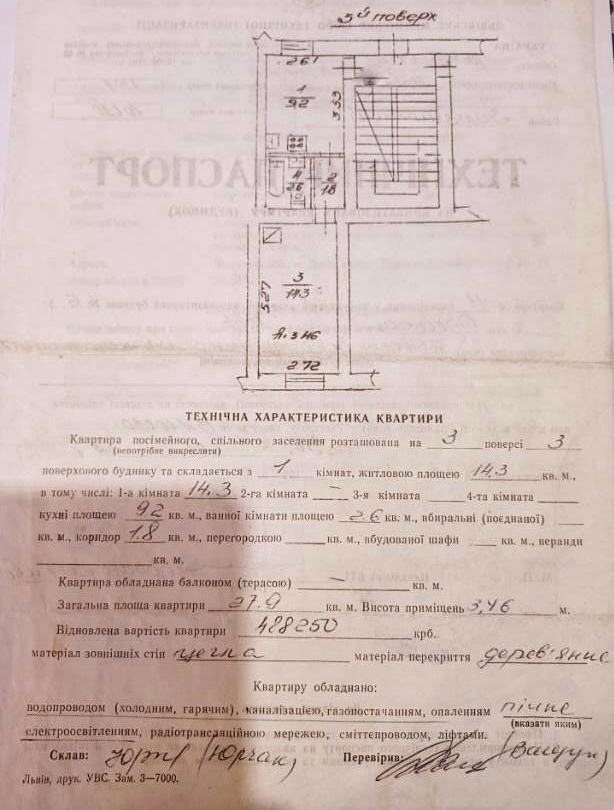 3й поверх
261
1
9.2
3.53
4
2.6
2
1.8
3
14.3
5.27
h. 3.46
2.72
ТЕХНІЧНА ХАРАКТЕРИСТИКА КВАРТИРИ
Квартира посімейного, спільного заселення розташована на 3 поверсі 3
(непотрібне викреслити)
поверхового будинку та складається з 1 кімнат, житловою площею 14.3 кв. м.,
в тому числі: 1-а кімната 14.3 2-га кімната — 3-я кімната 4-та кімната
кухні площею 9.2 кв. м., ванної кімнати площею 2.6 кв. м., вбиральні (поєднаної)
кв. м., коридор 1.8 кв. м., перегородкою кв. м., вбудованої шафи кв. м., веранди
кв. м.
Квартира обладнана балконом (терасою) — кв. м.
Загальна площа квартири 27.9 кв. м. Висота приміщень 3,46 м.
Відновлена вартість квартири 428250 крб.
матеріал зовнішніх стін цегла матеріал перекриття дерев'яне
Квартиру обладнано:
водопроводом (холодним, гарячим), каналізацією, газопостачанням, опаленням пічне
(вказати яким)
електроосвітленням, радіотрансляційною мережею, сміттєпроводом, ліфтами.
Склав: (Юрчак) Перевірив:
Львів, друк. УВС. Зам. 3—7000.